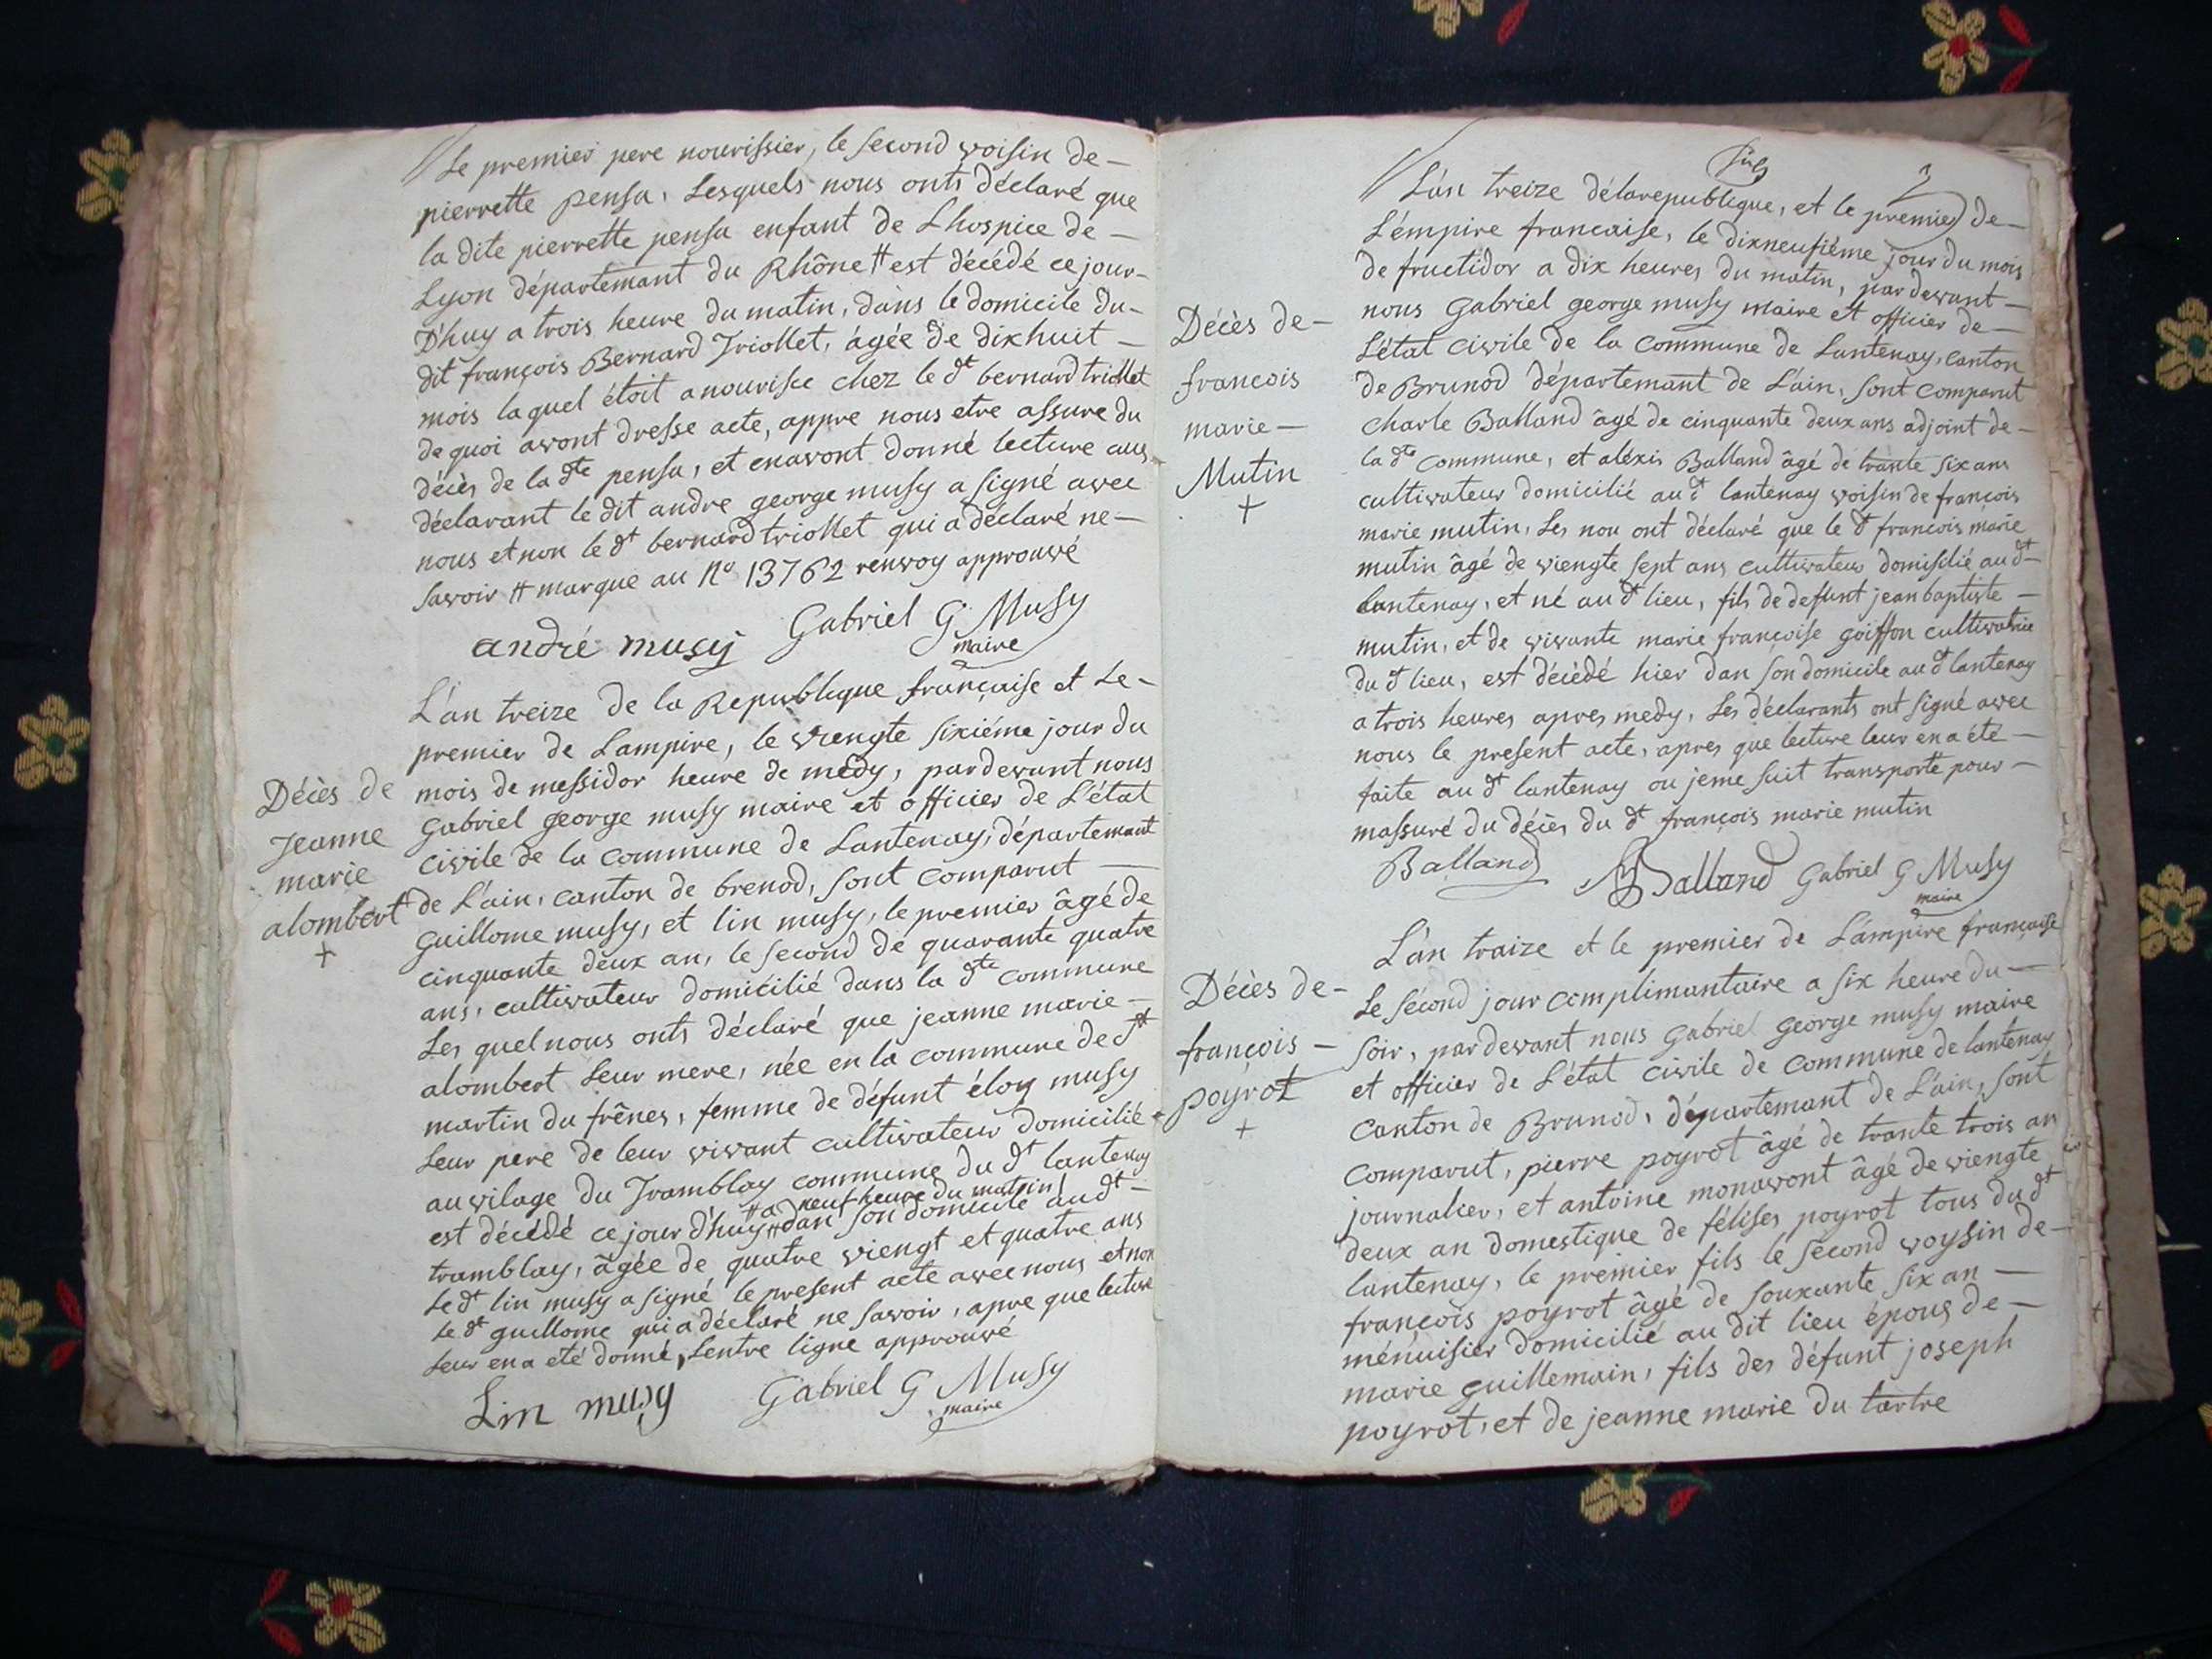 Le premier pere nourissier, le second voisin de-
pierrette pensa. Lesquels nous onts déclaré que
la dite pierrette pensa enfant de Lhospice de-
Lyon départemant du Rhône # est décédé ce jour-
D'huy a trois heure du matin, dans le domicile du-
dit françois Bernard Triollet, âgée de dixhuit-
mois laquel étoit a nourisse chez le dt bernard triollet
de quoi avont dresse acte, appre nous etre assure du
décès de la dte pensa, et enavont donné lecture aus
déclarant le dit andre george musy a signé avec
nous et non le dt bernard triollet qui a déclaré ne-
savoir # marque au No 13762 renvoy approuvé
andré musy Gabriel G Musy
maire
Décès de
Jeanne
marie
alombert
+
L'an treize de la Republique française et Le-
premier de Lampire, le viengte sixiéme jour du
mois de messidor heure de medy, pardevant nous
Gabriel george musy maire et officier de L'état
civile de la commune de Lantenay, départemant
de L'ain, canton de brenod, sont comparut
Guillome musy, et lin musy, le premier âgé de
cinquante deux an, le second de quarante quatre
ans, cultivateur domicilié dans la dte commune
Les quel nous onts déclaré que jeanne marie-
alombert Leur mere, née en la commune de st
martin du frênes, femme de défunt éloy musy
Leur pere de leur vivant cultivateur domicilié
au vilage du Tramblay commune du dt lantenay
# a neuf heure du matin
est décédé ce jour d'huy # dan son domicile audt-
tramblay, âgée de quatre viengt et quatre ans
Le dt lin musy a signé le present acte avec nous et non
Le dt guillome qui a déclaré ne savoir, apre que lecture
Leur en a eté donné, Lentre ligne approuvé
Lin musy Gabriel G Musy
maire
L'an treize délarepublique, et le premier de-
L'émpire francaise, le dixneufiéme jour du mois
de fructidor a dix heures du matin, par devant-
nous Gabriel george musy maire et officier de-
L'état civile de la commune de Lantenay, canton
de Brunod départemant de L'ain, sont comparut
charle Balland âgé de cinquante deux ans adjoint de-
la dte commune, et aléxis Balland âgé de trante six ans
cultivateur domicilié au dt lantenay voisin de françois
marie mutin, Les nou ont déclaré que le dt francois marie
mutin âgé de viengte sept ans cultivateur domisilié au dt-
lantenay, et né au dt lieu, fils de defunt jean baptiste-
mutin, et de vivante marie françoise goiffon cultivatrice
du dt lieu, est décédé hier dan son domicile au dt lantenay
a trois heures apres medy, Les déclarants ont signé avec
nous le present acte, apres que lecture leur en a été-
faite au dt lantenay ou jeme suit transporte pour-
massuré du décès du dt françois marie mutin
Décès de-
francois
marie-
Mutin
+
Balland Balland Gabriel G Musy
maire
Décès de-
françois-
poyrot
+
L'an traize et le premier de L'ampire française
Le sécond jour complimantaire a six heure du-
soir, par devant nous Gabriel george musy maire
et officier de L'état civile de commune de lantenay
canton de Brunod, départemant de L'ain, sont
comparut, pierre poyrot âgé de trante trois an
journalier, et antoine monavont âgé de viengte
deux an domestique de félises poyrot tous du dt
lantenay, le premier fils le second voysin de-
françois poyrot âgé de souxante six an-
ménuisier domicilié au dit lieu épous de-
marie guillemain, fils des défunt joseph
poyrot, et de jeanne marie du tartre